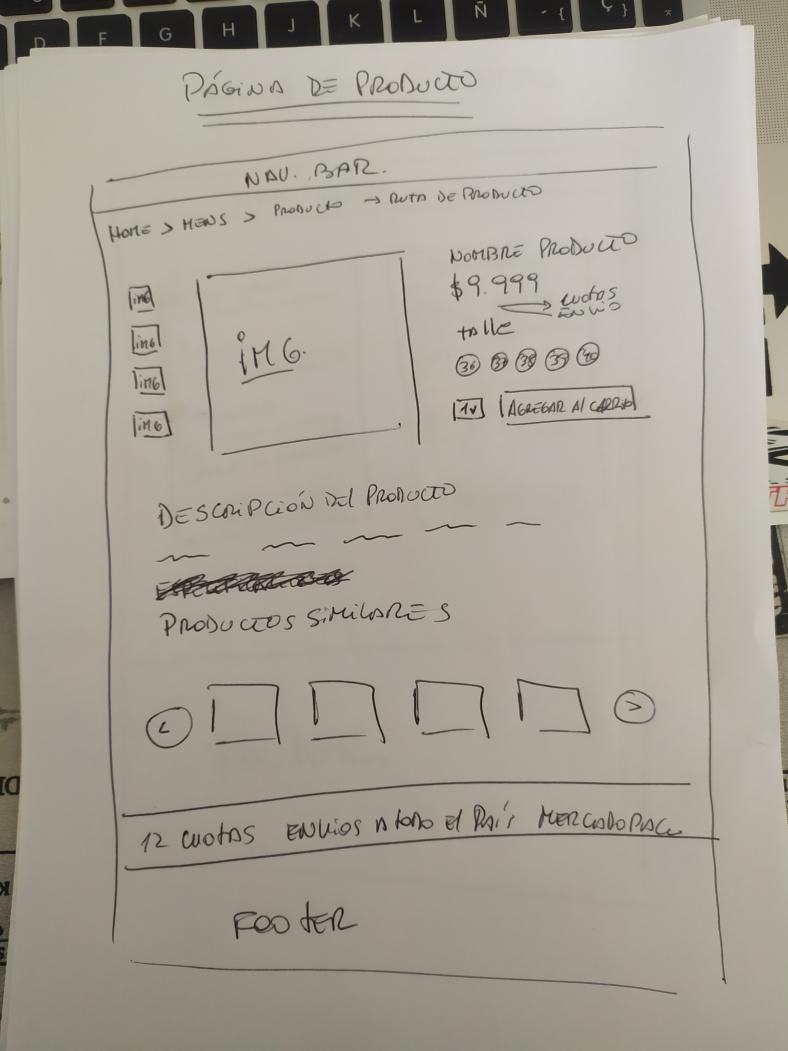 D F G H J K L Ñ { Ç }
PÁGINA DE PRODUCTO
NAV. BAR.
HOME > MENS > PRODUCTO → RUTA DE PRODUCTO
NOMBRE PRODUCTO
$9.999
cuotas
ENVIO
talle
36 37 38 39 40
img
img
img
img
iMG.
1 v AGREGAR Al CARRITO
DESCRIPCIÓN DEl PRODUCTO
PRODUCTOS SiMiLARES
< >
12 CUOTAS ENVIOS A todo El PAÍS MERCADOPAGO
FOOTER